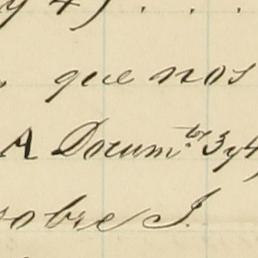 y 4) . . . .
que nos
A Docum.tos 3 y 4)
sobre J.